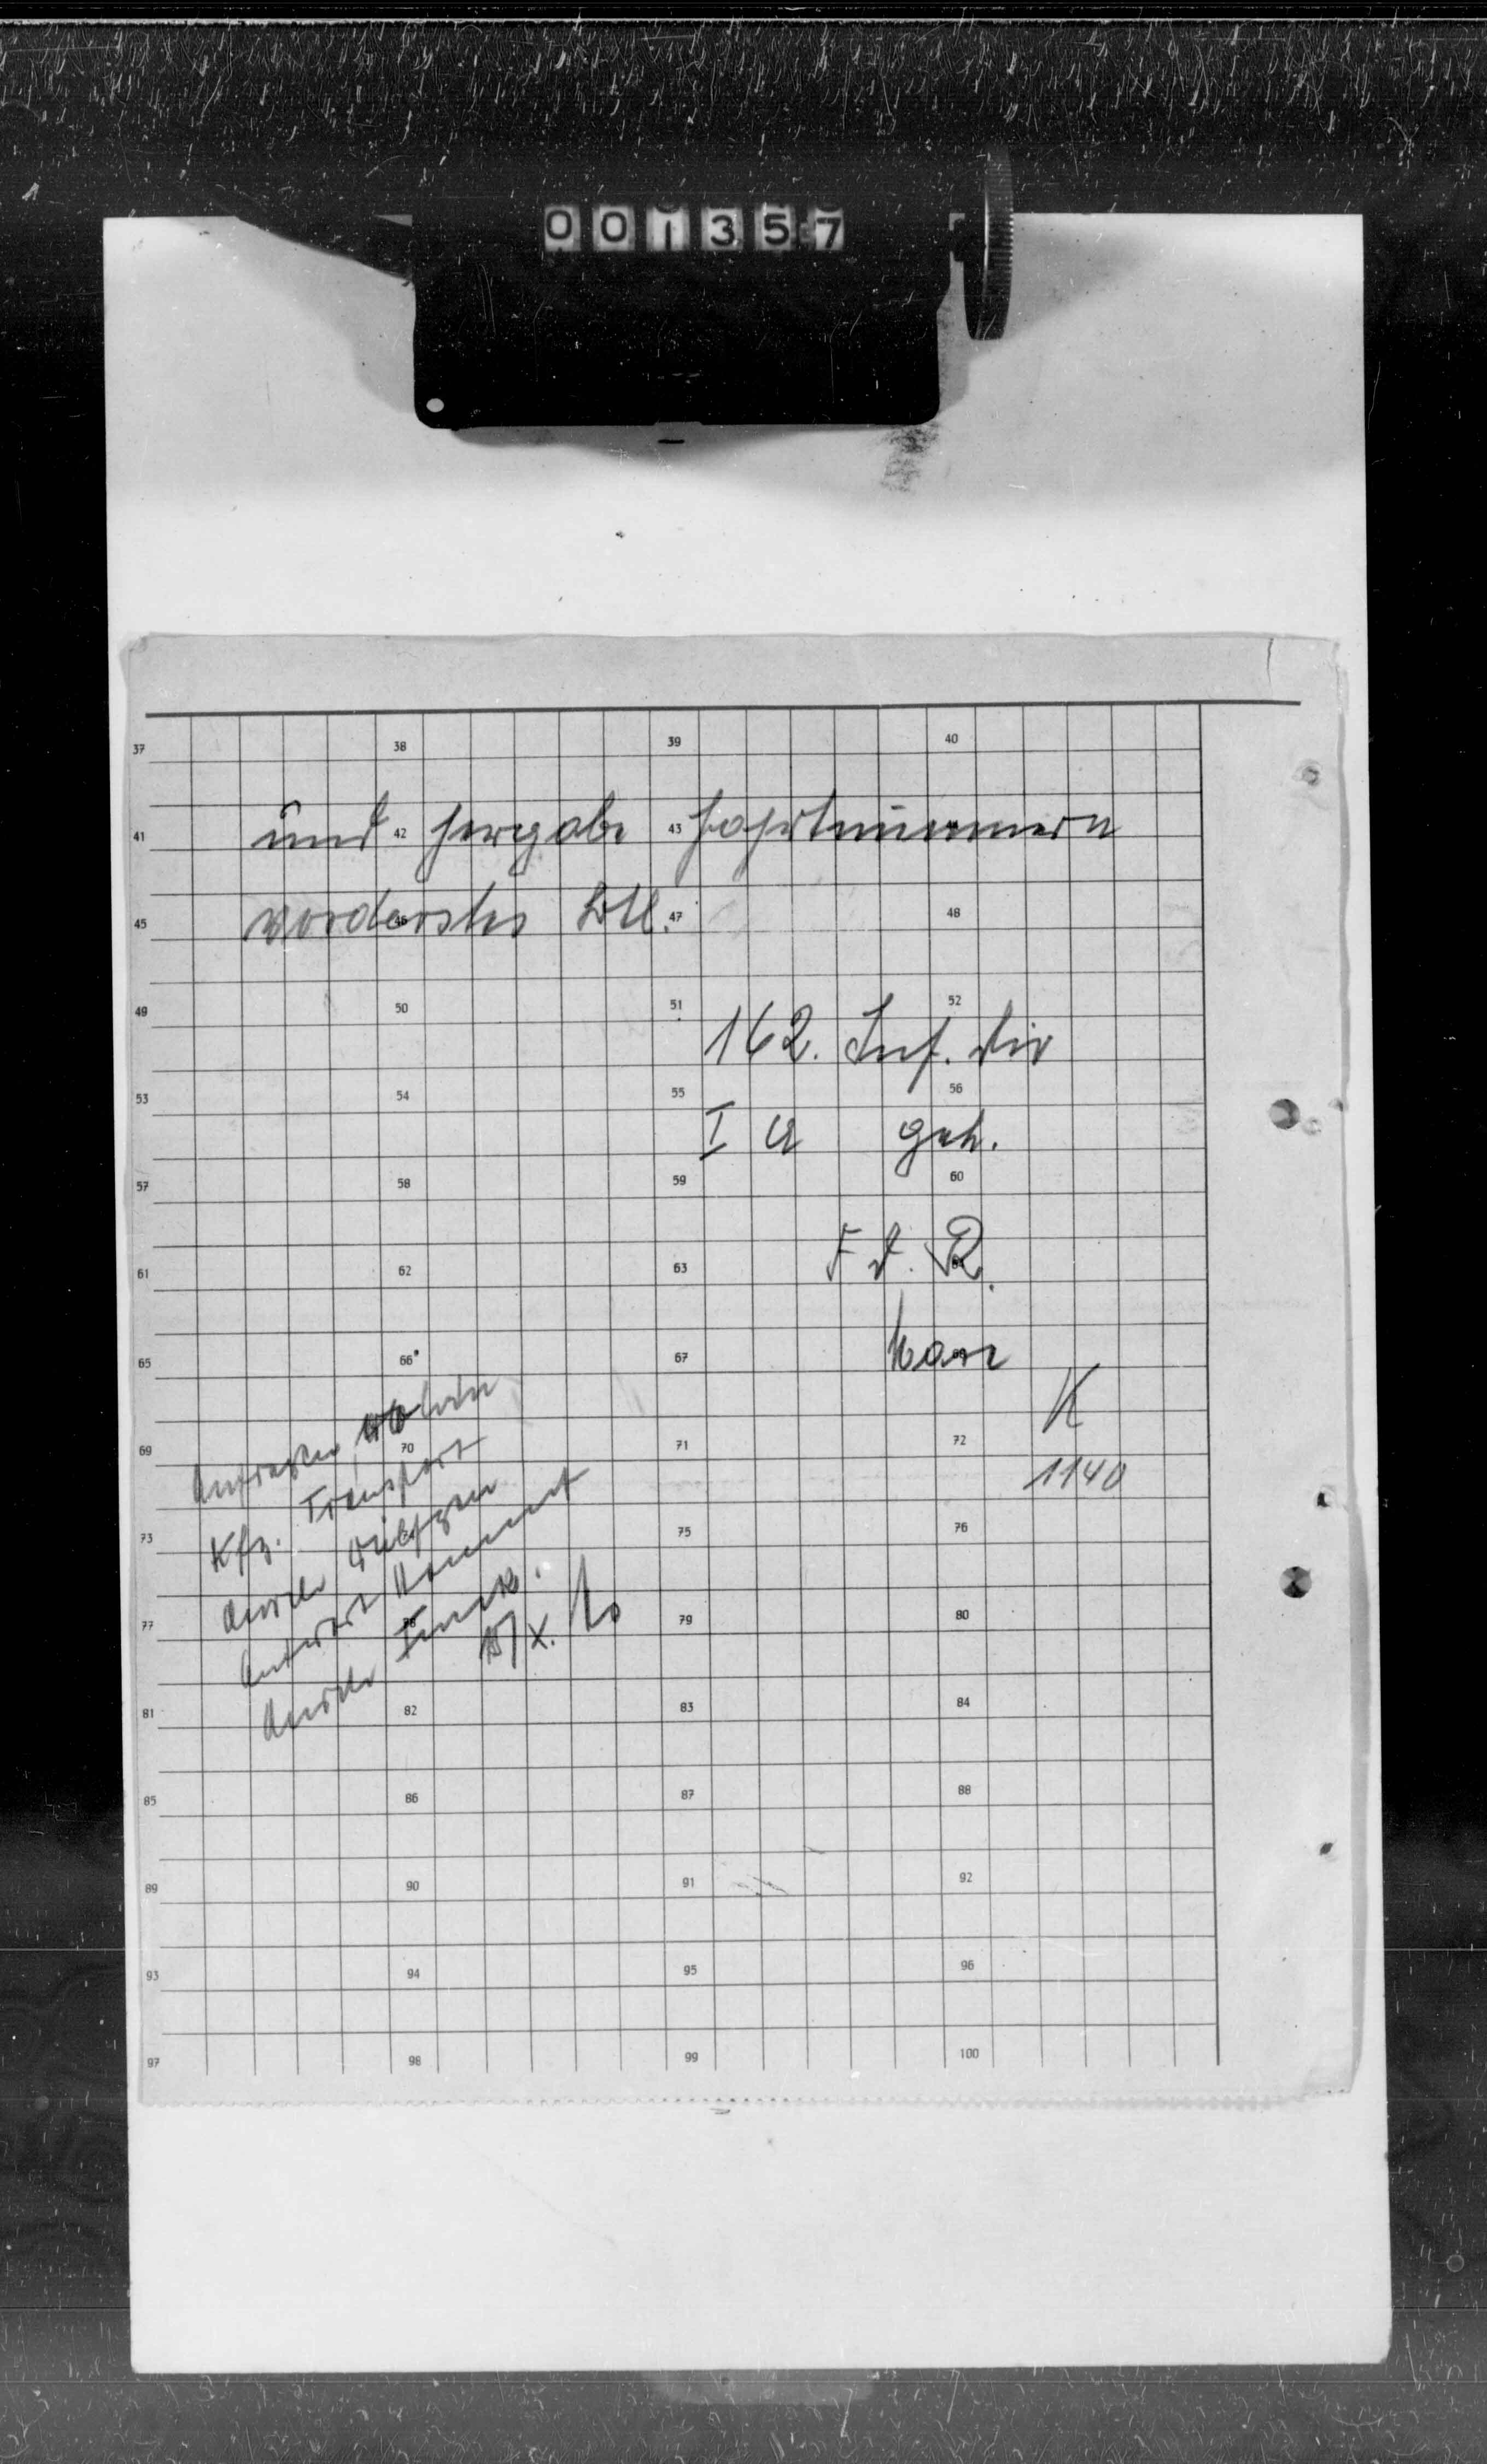 001357
37 38 39 40
41 42 43
und hergabe Fahrtnummern
45 46 47 48
vorderstes Btl.
49 50 51 52
162. Inf. Div
53 54 55 56
I a gez.
57 58 59 60
F. d. R.
61 62 63
65 66 67
K
69 70 71 72
1140
Kfz. Transport
73 75 76
Antwort kommt
77 78 79 80
durch Funk.
/X.
81 82 83 84
85 86 87 88
89 90 91 92
93 94 95 96
97 98 99 100